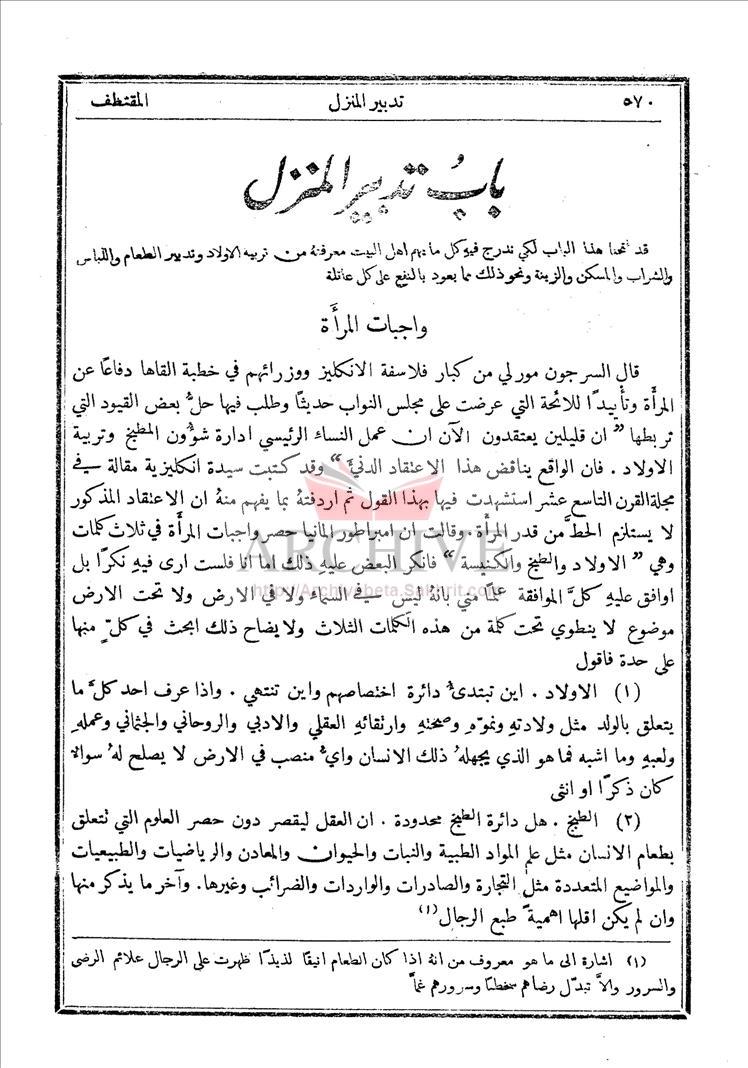 ٥٧٠ تدبير المنزل المقتطف
باب تدبير المنزل
قد فتحنا هذا الباب لكي ندرج فيهِ كل ما يهم اهل البيت معرفتهُ من تربية الاولاد وتدبير الطعام واللباس
والشراب والمسكن والزينة ونحو ذلك مما يعود بالنفع على كل عائلة
واجبات المرأَة
قال السر جون مورلي من كبار فلاسفة الانكليز ووزرائهم في خطبة القاها دفاعًا عن
المرأَة وتأْييدًا للائحة التي عرضت على مجلس النواب حديثًا وطلب فيها حلُّ بعض القيود التي
تربطها ” ان قليلين يعتقدون الآن ان عمل النساء الرئيسي ادارة شؤُون المطبخ وتربية
الاولاد . فان الواقع يناقض هذا الاعتقاد الدنيَّ “ وقد كتبت سيدة انكليزية مقالة في
مجلة القرن التاسع عشر استشهدت فيها بهذا القول ثم اردفتهُ بما يفهم منهُ ان الاعتقاد المذكور
لا يستلزم الحطَّ من قدر المرأَة . وقالت ان امبراطور المانيا حصر واجبات المرأَة في ثلاث كلمات
وهي ” الاولاد والطبخ والكنيسة “ فانكر البعض عليهِ ذلك اما انا فلست ارى فيهِ نكرًا بل
اوافق عليهِ كلَّ الموافقة علمًا مني بانهُ ليس في السماء ولا في الارض ولا تحت الارض
موضوع لا ينطوي تحت كلمة من هذه الكلمات الثلاث ولايضاح ذلك ابحث في كلٍّ منها
على حدة فاقول
(١) الاولاد . اين تبتدئُ دائرة اختصاصهم واين تنتهي . واذا عرف احد كلَّ ما
يتعلق بالولد مثل ولادتهِ ونموّهِ وصحتهِ وارتقائهِ العقلي والادبي والروحاني والجثماني وعملهِ
ولعبهِ وما اشبه فما هو الذي يجهلهُ ذلك الانسان وايُّ منصب في الارض لا يصلح لهُ سوالا
كان ذكرًا او انثى
(٢) الطبخ . هل دائرة الطبخ محدودة . ان العقل ليقصر دون حصر العلوم التي تتعلق
بطعام الانسان مثل علم المواد الطبية والنبات والحيوان والمعادن والرياضيات والطبيعيات
والمواضيع المتعددة مثل التجارة والصادرات والواردات والضرائب وغيرها. وآخر ما يذكر منها
وان لم يكن اقلها اهميةً طبع الرجال(١)
(١) اشارة الى ما هو معروف من انهُ اذا كان الطعام انيقًا لذيذًا ظهرت على الرجال علائم الرضى
والسرور والاَّ تبدّل رضاهم سخطًا وسرورهم غمًّا
ARCHIVE
http://Archivebeta.Sakhrit.com